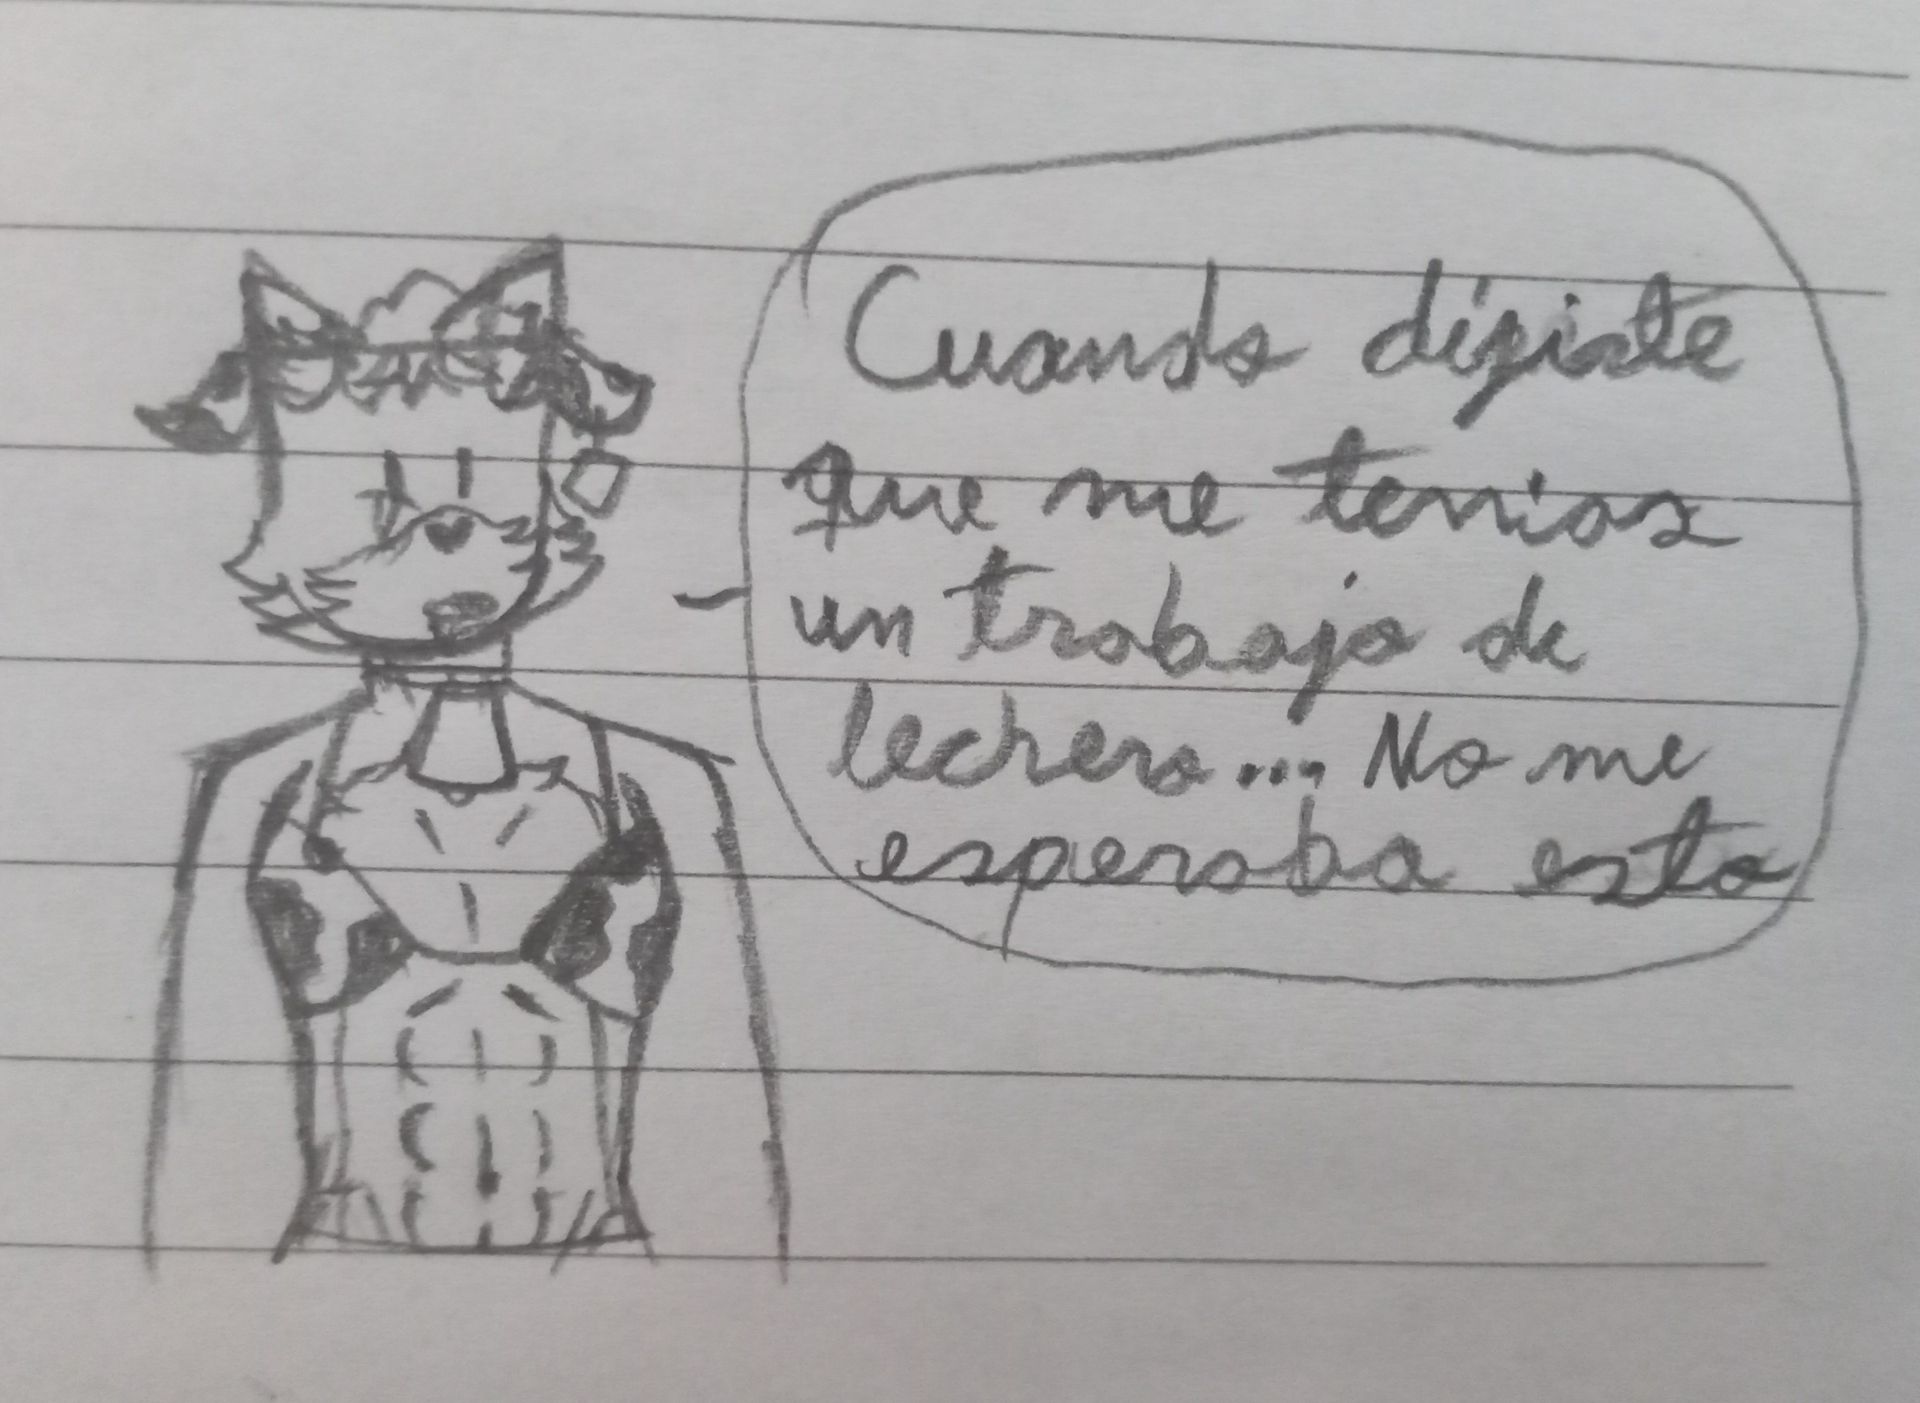 Cuando dígiste
que me tenias
un trabajo de
lechero... No me
esperaba esto